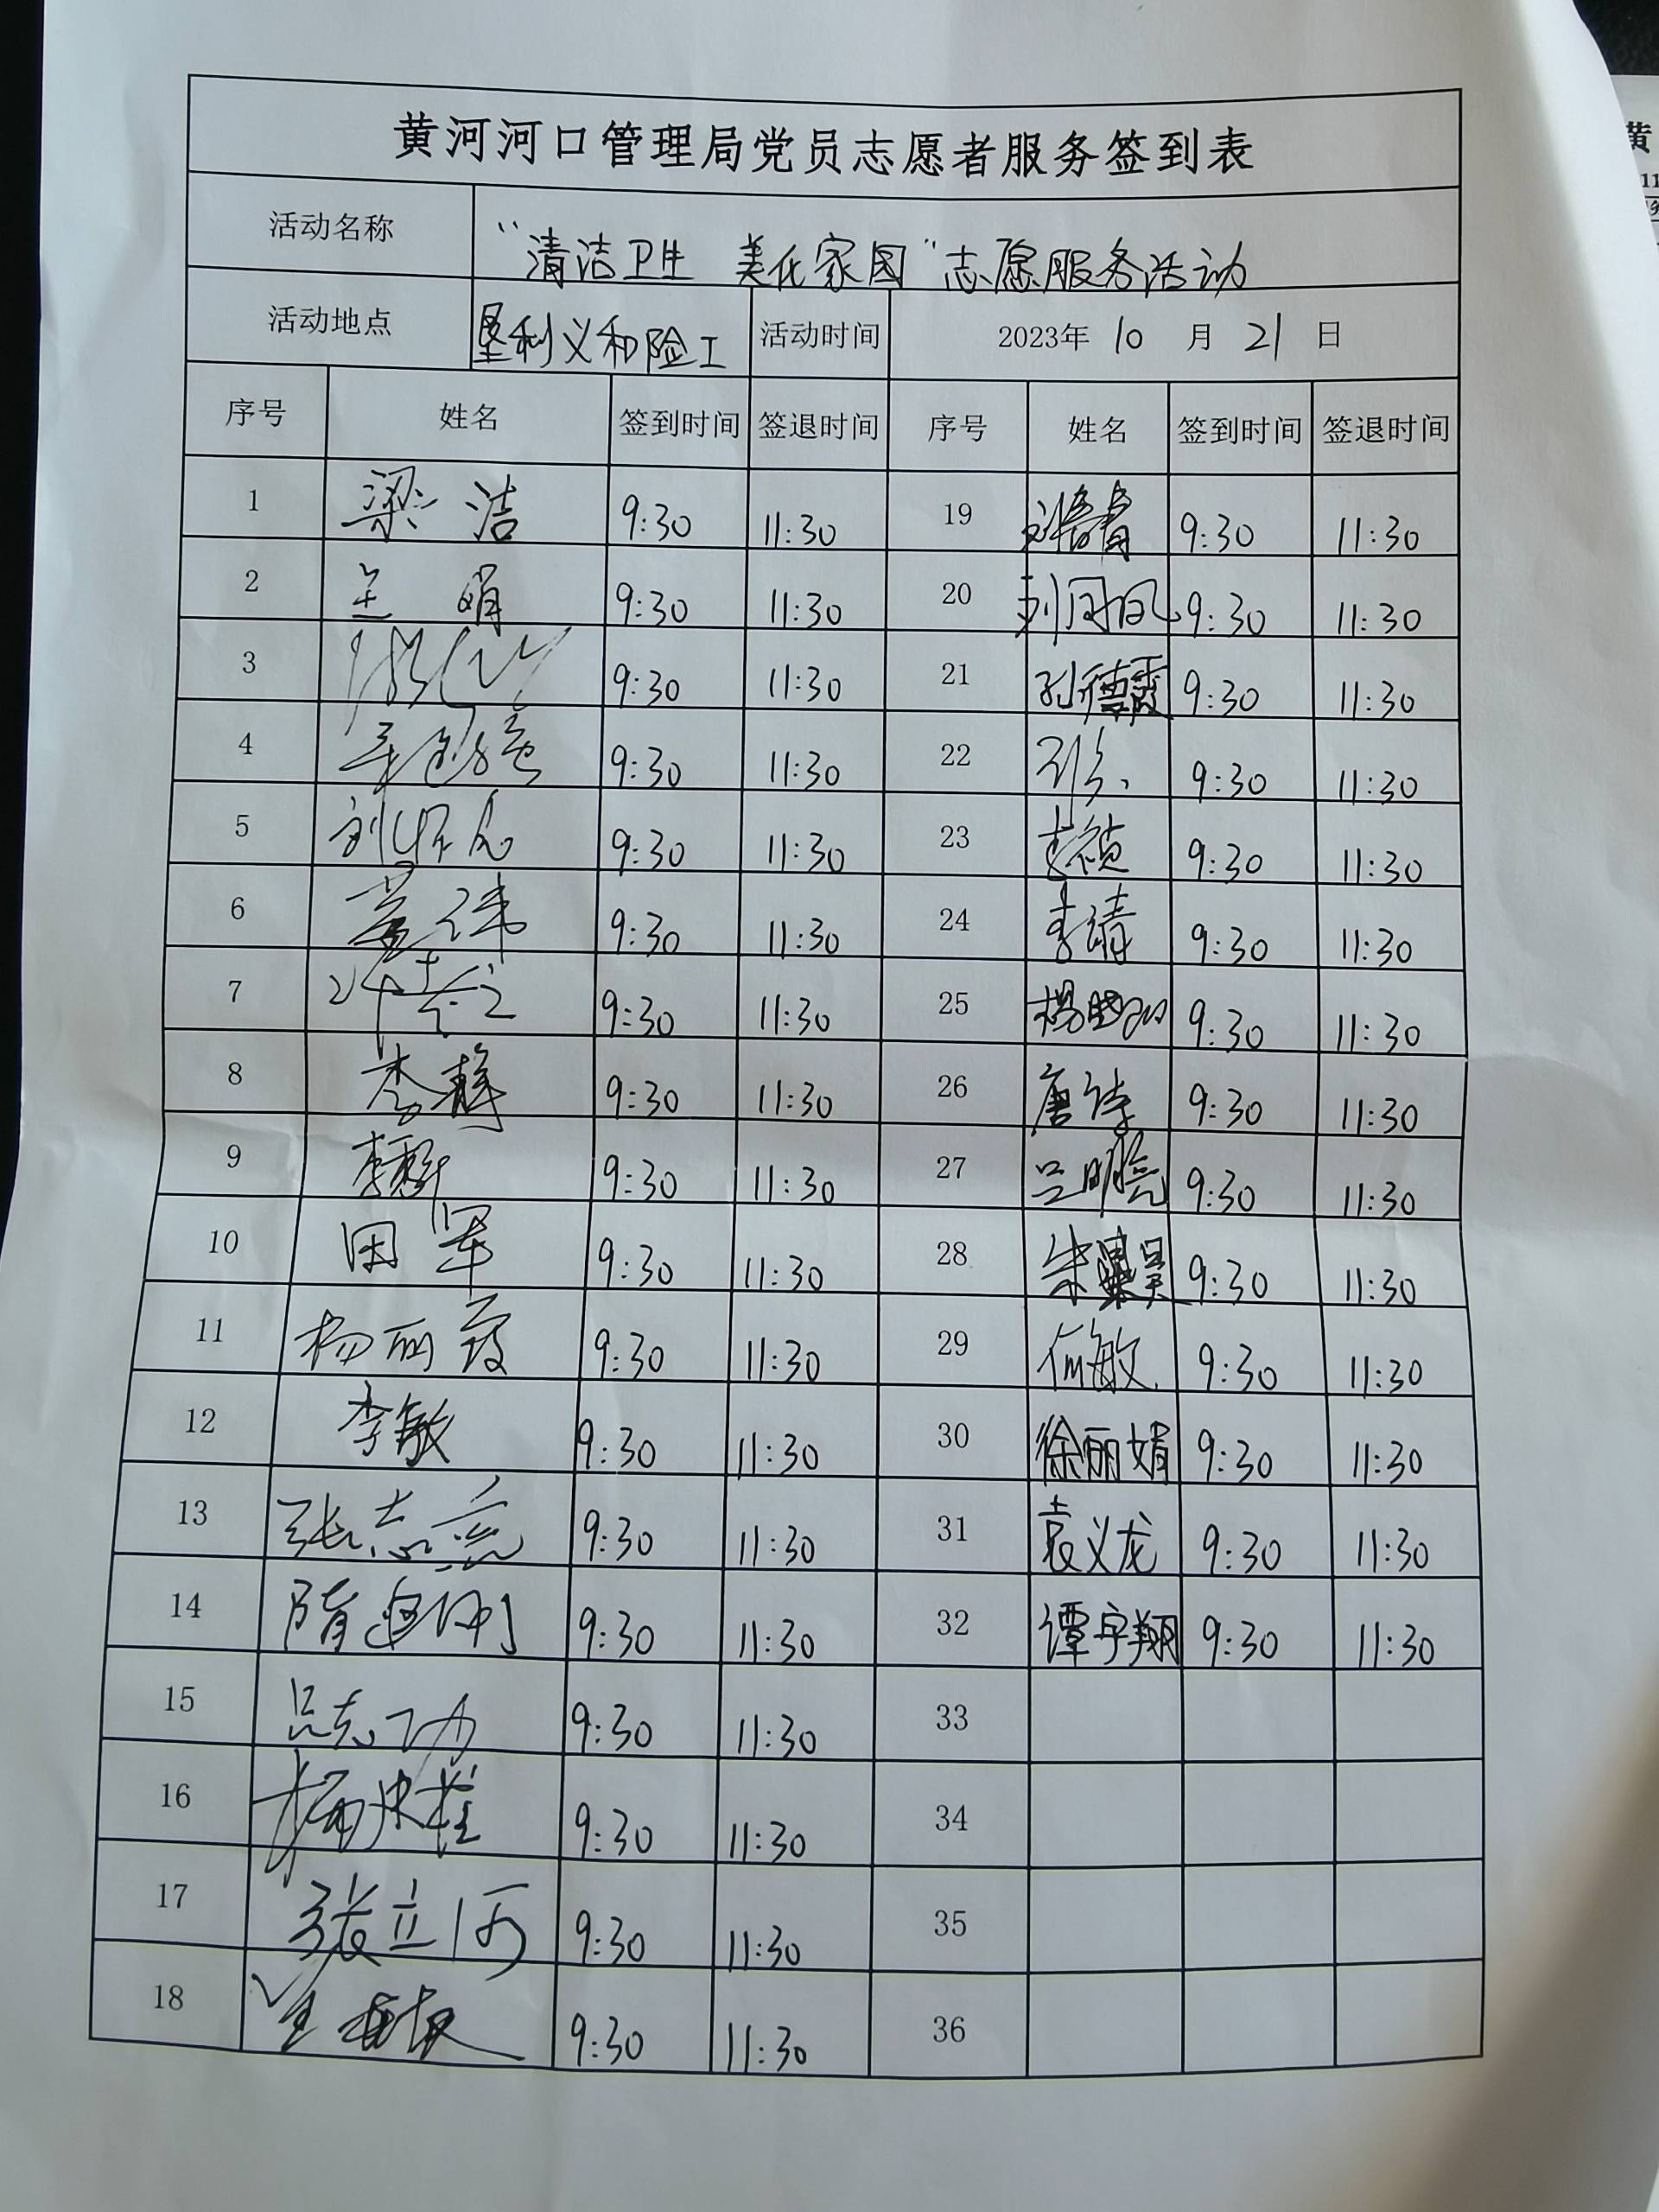 黄河河口管理局党员志愿者服务签到表
活动名称 “清洁卫生 美化家园”志愿服务活动
活动地点 垦利义和险工 活动时间 2023年 10 月 21 日
序号 姓名 签到时间 签退时间 序号 姓名 签到时间 签退时间
1 梁洁 9:30 11:30 19 9:30 11:30
2 王娟 9:30 11:30 20 9:30 11:30
3 9:30 11:30 21 孔德霞 9:30 11:30
4 9:30 11:30 22 9:30 11:30
5 9:30 11:30 23 9:30 11:30
6 9:30 11:30 24 李靖 9:30 11:30
7 9:30 11:30 25 9:30 11:30
8 李静 9:30 11:30 26 9:30 11:30
9 9:30 11:30 27 吕明亮 9:30 11:30
10 田军 9:30 11:30 28 9:30 11:30
11 杨丽霞 9:30 11:30 29 何敏 9:30 11:30
12 李敏 9:30 11:30 30 徐丽娟 9:30 11:30
13 9:30 11:30 31 袁义龙 9:30 11:30
14 隋建刚 9:30 11:30 32 谭宇翔 9:30 11:30
15 吕志功 9:30 11:30 33
16 9:30 11:30 34
17 张立河 9:30 11:30 35
18 9:30 11:30 36
黄
11